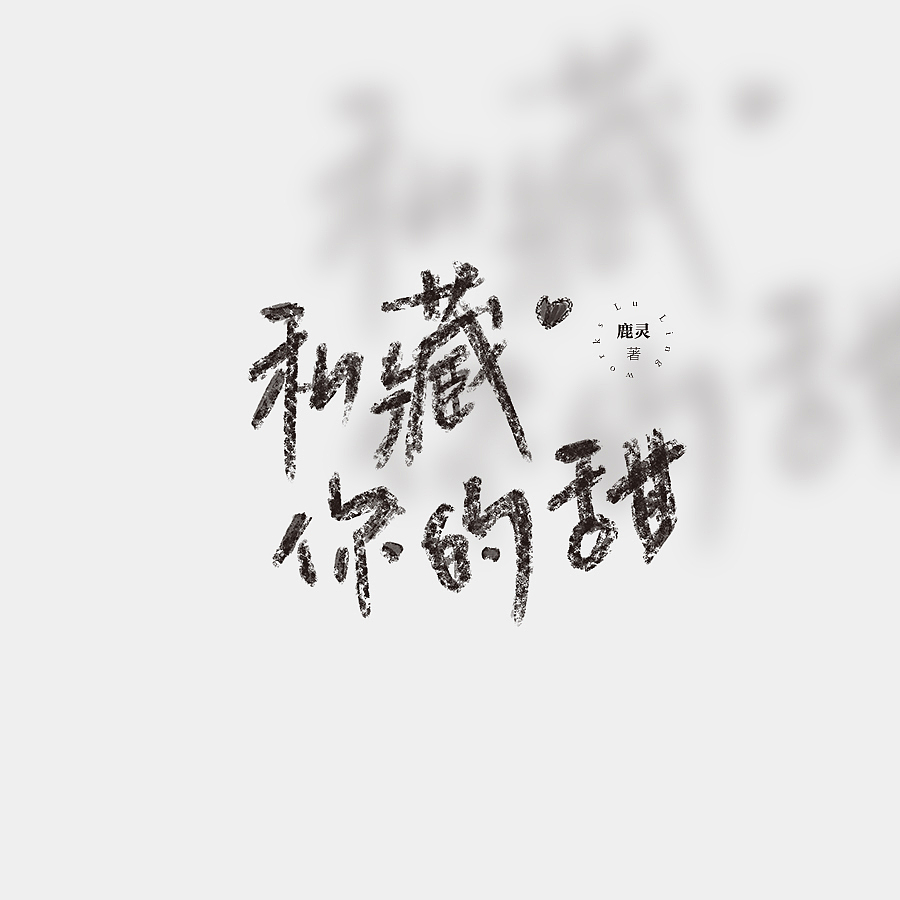 私藏
你的甜
Lu Ling works
鹿灵
著